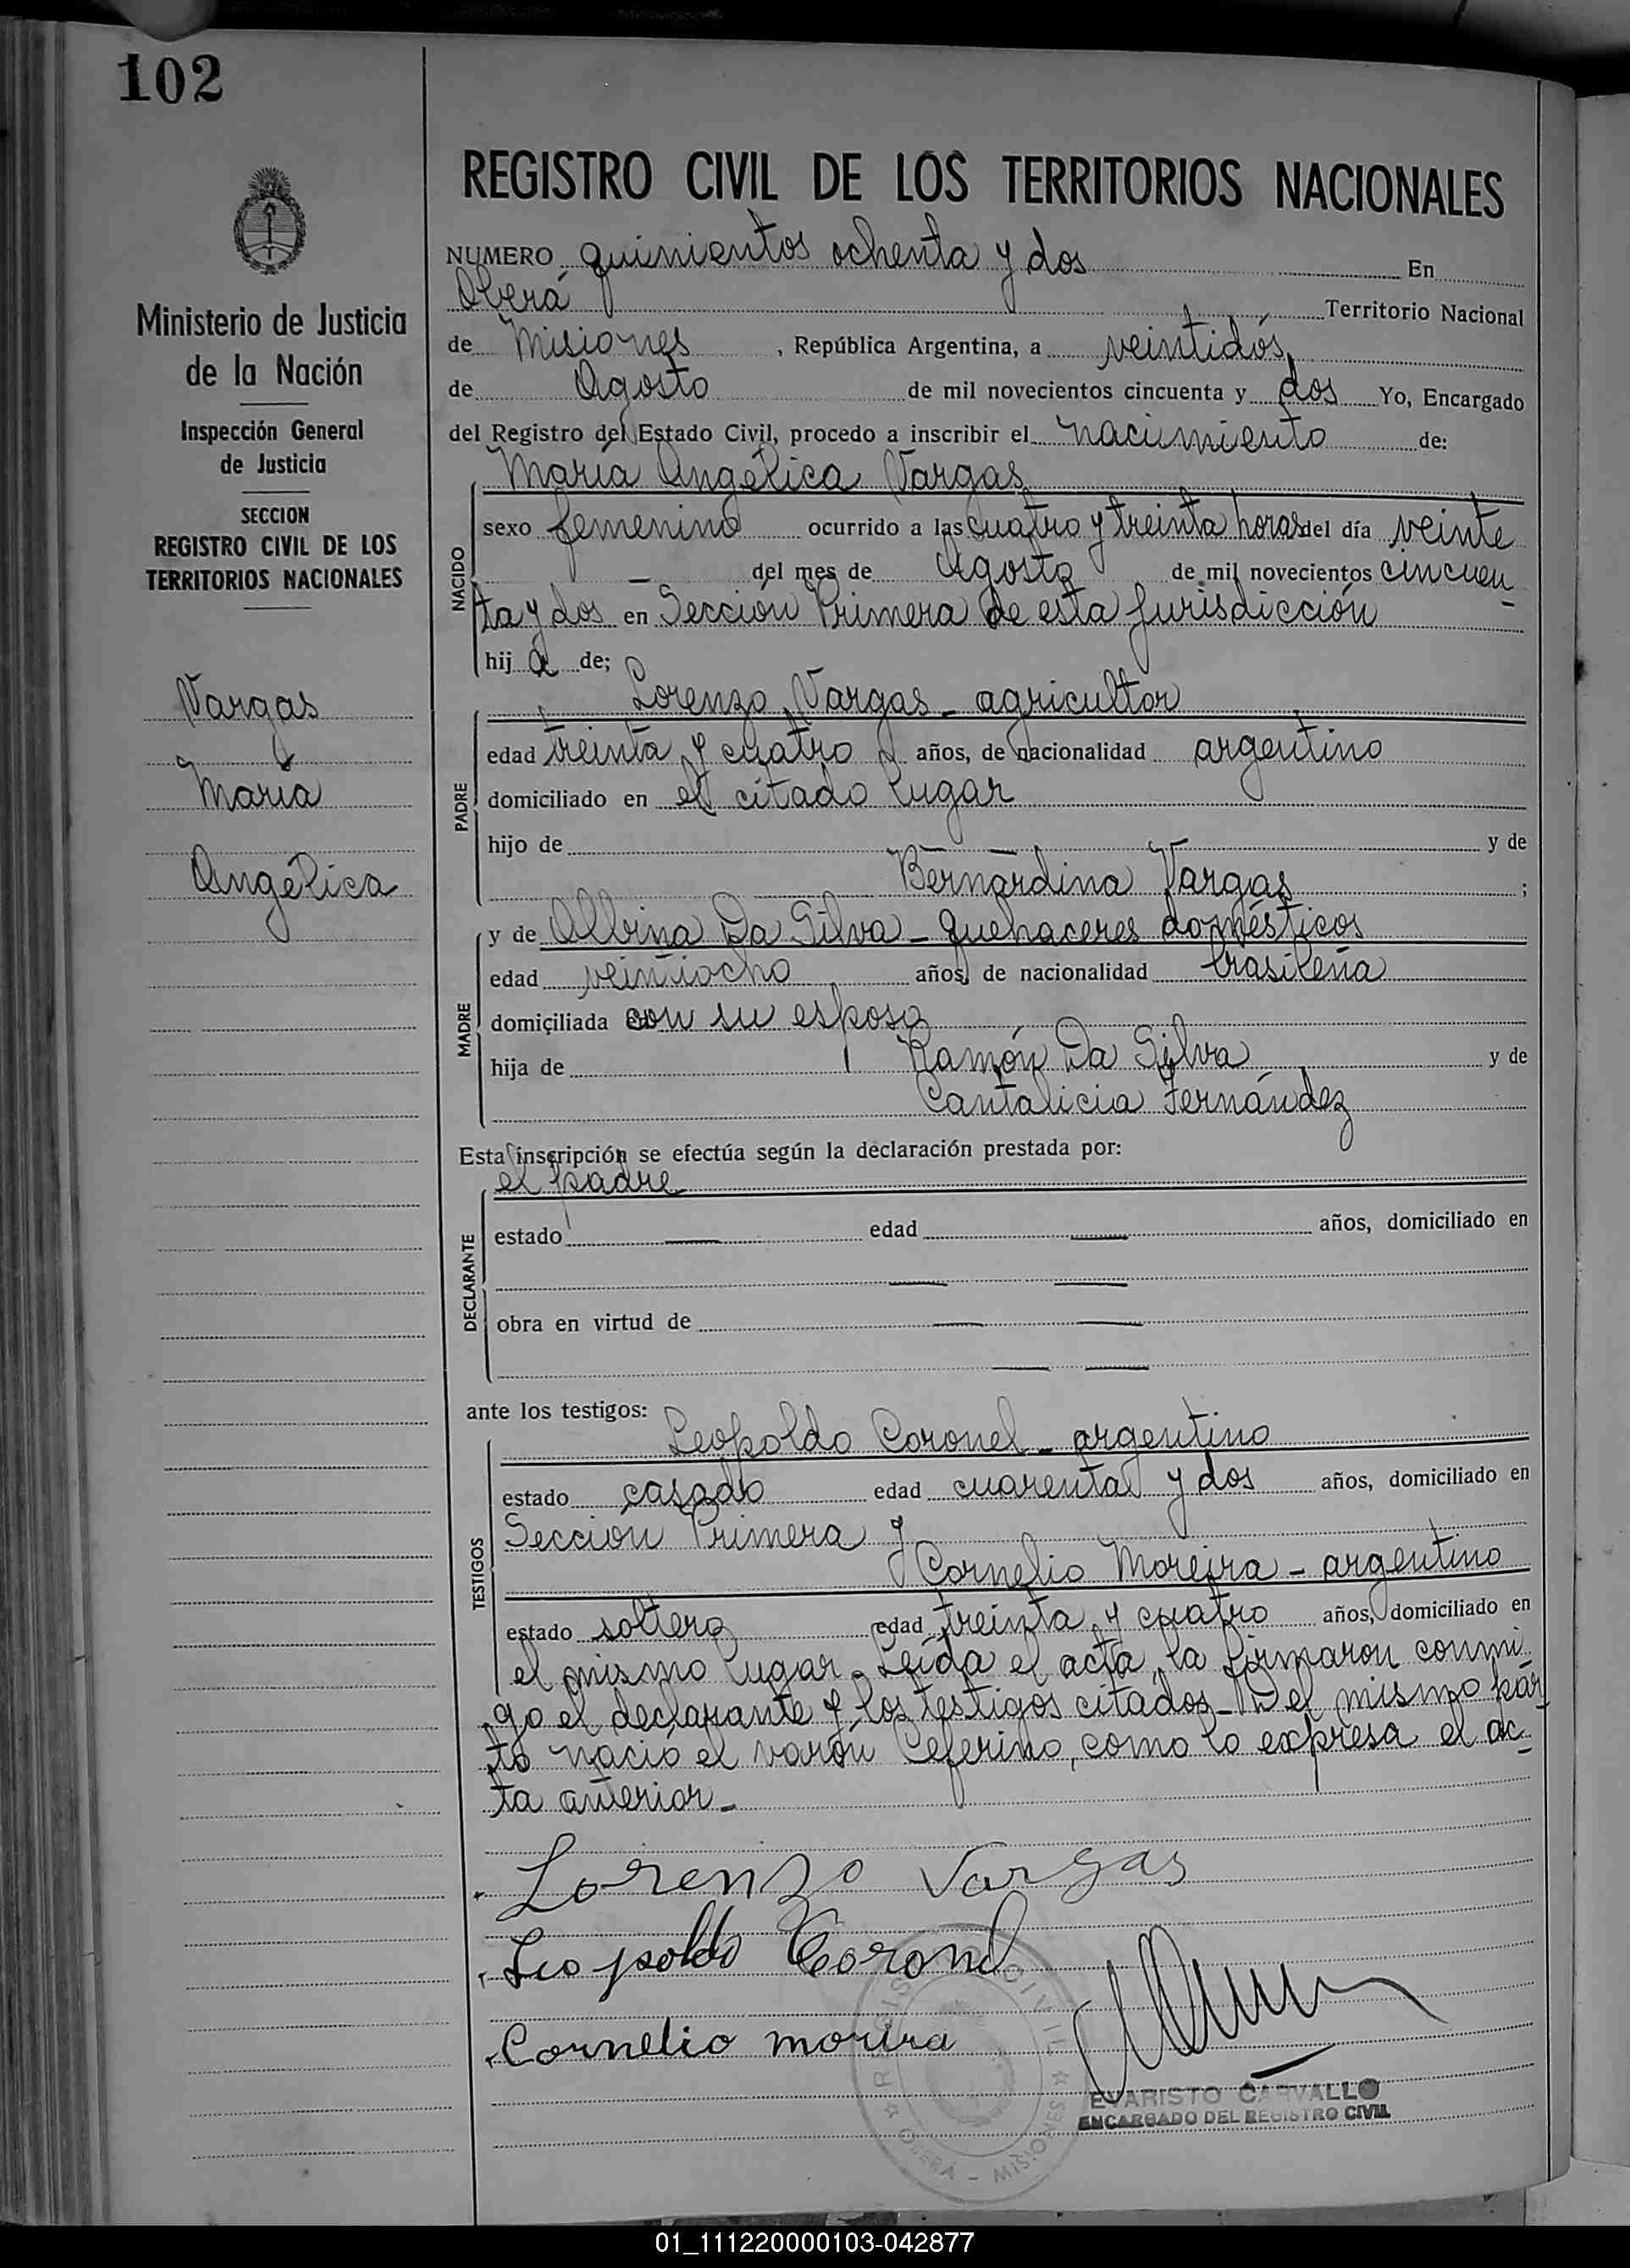 102
REGISTRO CIVIL DE LOS TERRITORIOS NACIONALES
NUMERO quinientos ochenta y dos En
Oberá Territorio Nacional
de Misiones , República Argentina, a veintidós
de Agosto de mil novecientos cincuenta y dos Yo, Encargado
del Registro del Estado Civil, procedo a inscribir el nacimiento de:
María Angélica Vargas
NACIDO
sexo femenino ocurrido a las cuatro y treinta horas del día veinte
— del mes de Agosto de mil novecientos cincuen-
ta y dos en Sección Primera de esta Jurisdicción
hij a de;
Lorenzo Vargas - agricultor
PADRE
edad treinta y cuatro años, de nacionalidad argentino
domiciliado en el citado lugar
hijo de — — y de
Bernardina Vargas ;
y de Albina Da Silva - quehaceres domésticos
MADRE
edad veintiocho años, de nacionalidad brasileña
domiciliada con su esposo
hija de Ramón Da Silva y de
Cantalicia Fernández
Esta inscripción se efectúa según la declaración prestada por:
el padre
DECLARANTE
estado — edad — años, domiciliado en
— —
obra en virtud de — —
— —
ante los testigos:
Leopoldo Coronel - argentino
TESTIGOS
estado casado edad cuarenta y dos años, domiciliado en
Sección Primera y
Cornelio Moreira - argentino
estado soltero edad treinta y cuatro años, domiciliado en
el mismo lugar. Leída el acta, la firmaron conmi-
go el declarante y los testigos citados - Del mismo par-
to nació el varón Ceferino, como lo expresa el ac-
ta anterior -
Lorenzo Vargas
Leopoldo Coronel
Cornelio morira
REGISTRO CIVIL
OBERÁ - MISIONES
EVARISTO CARVALLO
ENCARGADO DEL REGISTRO CIVIL
Ministerio de Justicia
de la Nación
Inspección General
de Justicia
SECCION
REGISTRO CIVIL DE LOS
TERRITORIOS NACIONALES
Vargas
María
Angélica
01_111220000103-042877